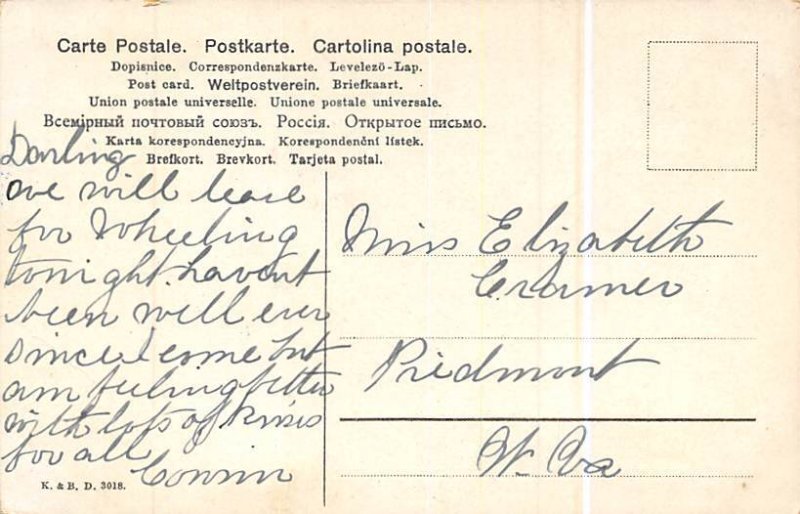 Carte Postale. Postkarte. Cartolina postale.
Dopisnice. Correspondenzkarte. Levelező-Lap.
Post card. Weltpostverein. Briefkaart.
Union postale universelle. Unione postale universale.
Всемірный почтовый союзъ. Россія. Открытое письмо.
Karta korespondencyjna. Korespondenční lístek.
Brefkort. Brevkort. Tarjeta postal.
Darling
we will leave
for Wheeling
tonight havent
been well ever
since I come but
am feeling better
with lots of kisses
for all
Cousin
Miss Elizabeth
Cramer
Piedmont
W. Va
K. & B. D. 3018.